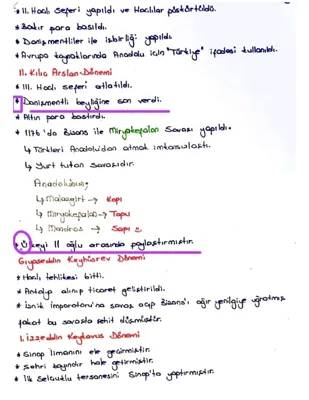 * II. Haçlı Seferi yapıldı ve Haçlılar püskürtüldü.
* Bakır para basıldı.
* Danişmentliler ile işbirliği yapıldı.
* Avrupa kaynaklarında Anadolu için "Türkiye" ifadesi kullanıldı.
II. Kılıç Arslan Dönemi
* III. Haçlı seferi atlatıldı.
* Danişmentli beyliğine son verdi.
* Altın para bastırdı.
* 1176'da Bizans ile Miryokefalon Savaşı yapıldı.
↳ Türkleri Anadolu'dan atmak imkansızlaştı.
↳ Yurt tutan savaşıdır.
Anadolu'nun;
↳ Malazgirt → Kapı
↳ Miryokefalon → Tapu
↳ Mondros → Sapı
* Ülkeyi 11 oğlu arasında paylaştırmıştır.
Gıyaseddin Keyhüsrev Dönemi
* Haçlı tehlikesi bitti.
* Antalya alınıp ticaret geliştirildi.
* İznik imparatoru'na savaş açıp Bizans'ı ağır yenilgiye uğratmış
fakat bu savaşta şehit düşmüştür.
I. İzzeddin Keykavus Dönemi
* Sinop limanını ele geçirmiştir.
* Şehri bayındır hale getirmiştir.
* İlk Selçuklu tersanesini Sinop'ta yaptırmıştır.